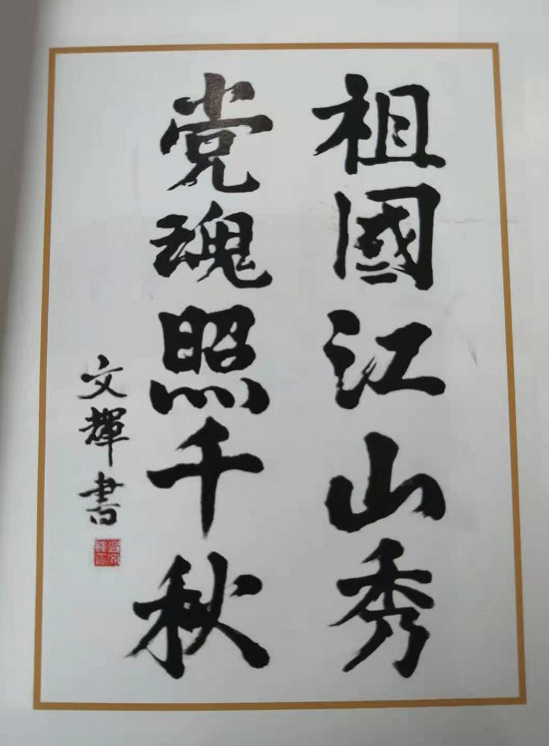 祖國江山秀
党魂照千秋
文輝書